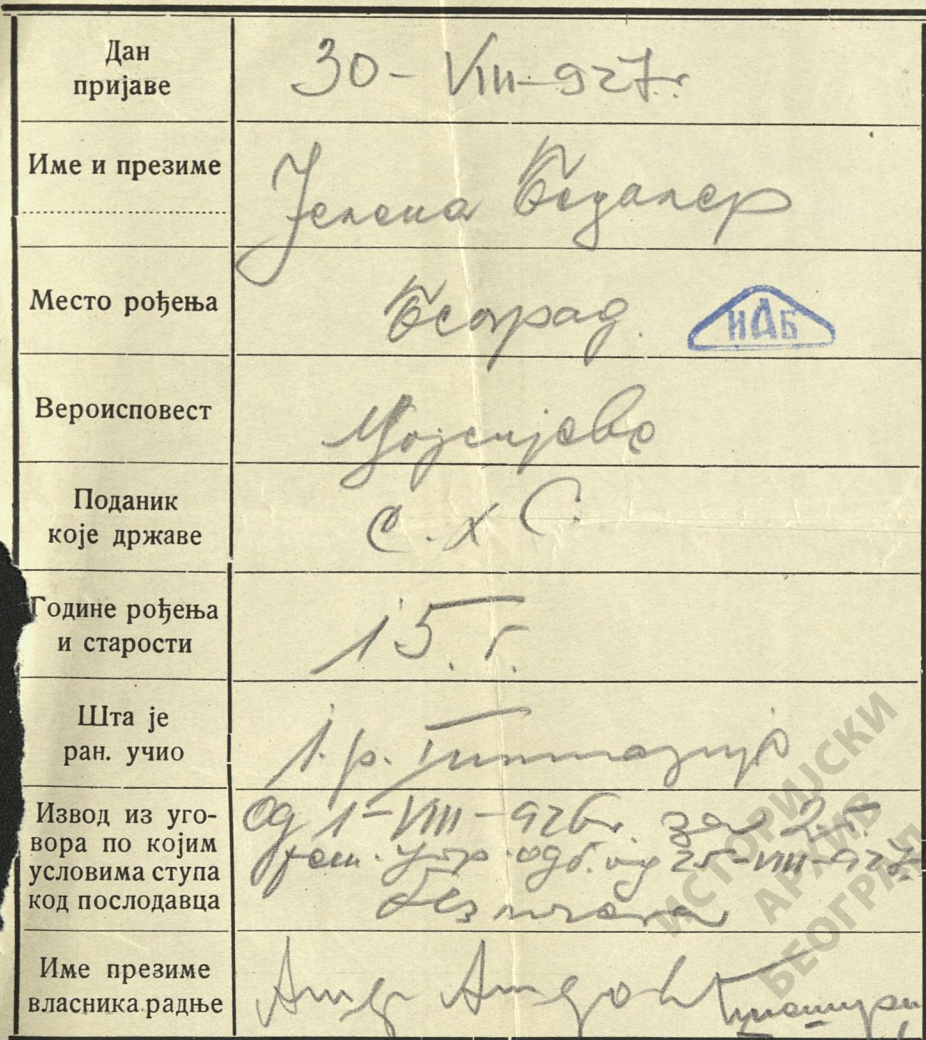 Дан
пријаве
30 - VIII - 927 г.
Име и презиме
Јелена Бедалер
Место рођења
Београд.
ИАБ
Вероисповест
Мојсијеве
Поданик
које државе
С. Х С.
Године рођења
и старости
15. г.
Шта је
ран. учио
1. р. Гимназије
Извод из уго-
вора по којим
условима ступа
код послодавца
Од 1 - VIII - 926 г. за 2 г.
реш. Упр. одб. од 25 - VIII - 927
без плате
Име презиме
власника радње
ИСТОРИЈСКИ
АРХИВ
БЕОГРАД